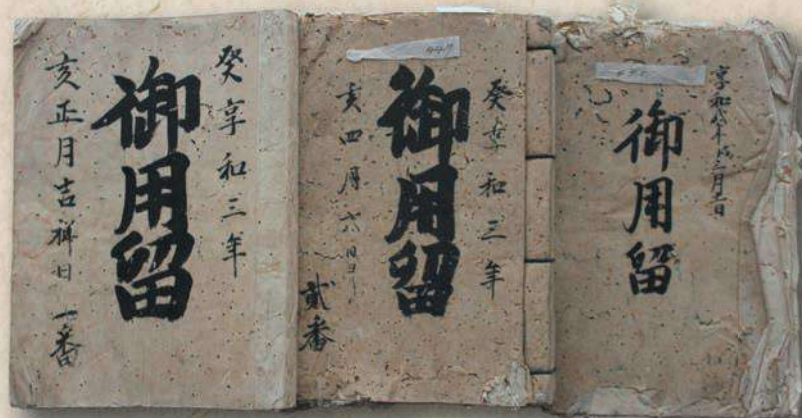 癸享和三年
御用留
亥正月吉祥日 一番
癸享和三年
御用留
亥四月六日ヨリ
貳番
享和
御用留